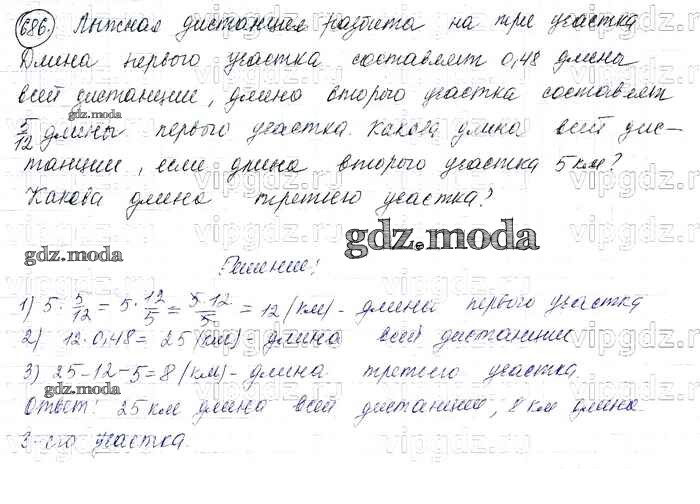 686. Лыжная дистанция разбита на три участка
Длина первого участка составляет 0,48 длины
всей дистанции, длина второго участка составляет
5/12 длины первого участка. Какова длина всей дис-
танции, если длина второго участка 5 км?
Какова длина третьего участка?
Решение:
1) 5 · 5/12 = 5 · 12/5 = 5·12/5 = 12 (км) - длина первого участка
2) 12 · 0,48 = 25 (км) - длина всей дистанции
3) 25-12-5=8 (км) - длина третьего участка.
Ответ: 25 км длина всей дистанции, 8 км длина
3-его участка.
gdz.moda
gdz.moda
gdz.moda
gdz.moda
vipgdz.ru